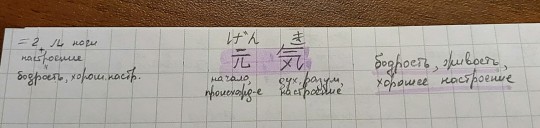 = 2 л ноги
настроение
бодрость, хорош. настр.
げん き
元 気
начало, происхожд-е
дух, разум, настроение
бодрость, живость,
хорошее настроение